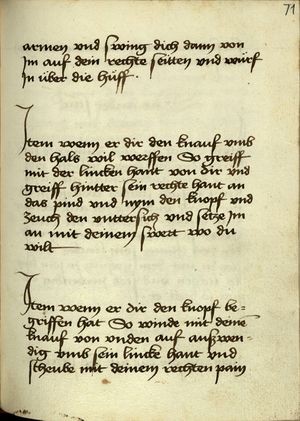 71
armen vnd swing dich dann von
Im auf dein rechte seitten vnd würf
In über die hüff
Item wenn er dir den knauf vmb
den hals wil werffen So greiff
mit der lincken hant von dir vnd
greiff hintter sein rechte hant an
das pind vnd nym den knopf vnd
zeuch den vnttersich vnd setze Im
an mit deinem swert wo du
wilt
Item wenn er dir den knopf be=
griffen hat So winde mit deinē
knauf von vnden auf außwen=
dig vmb sein lincke hant vnd
scheube mit deinem rechten pain